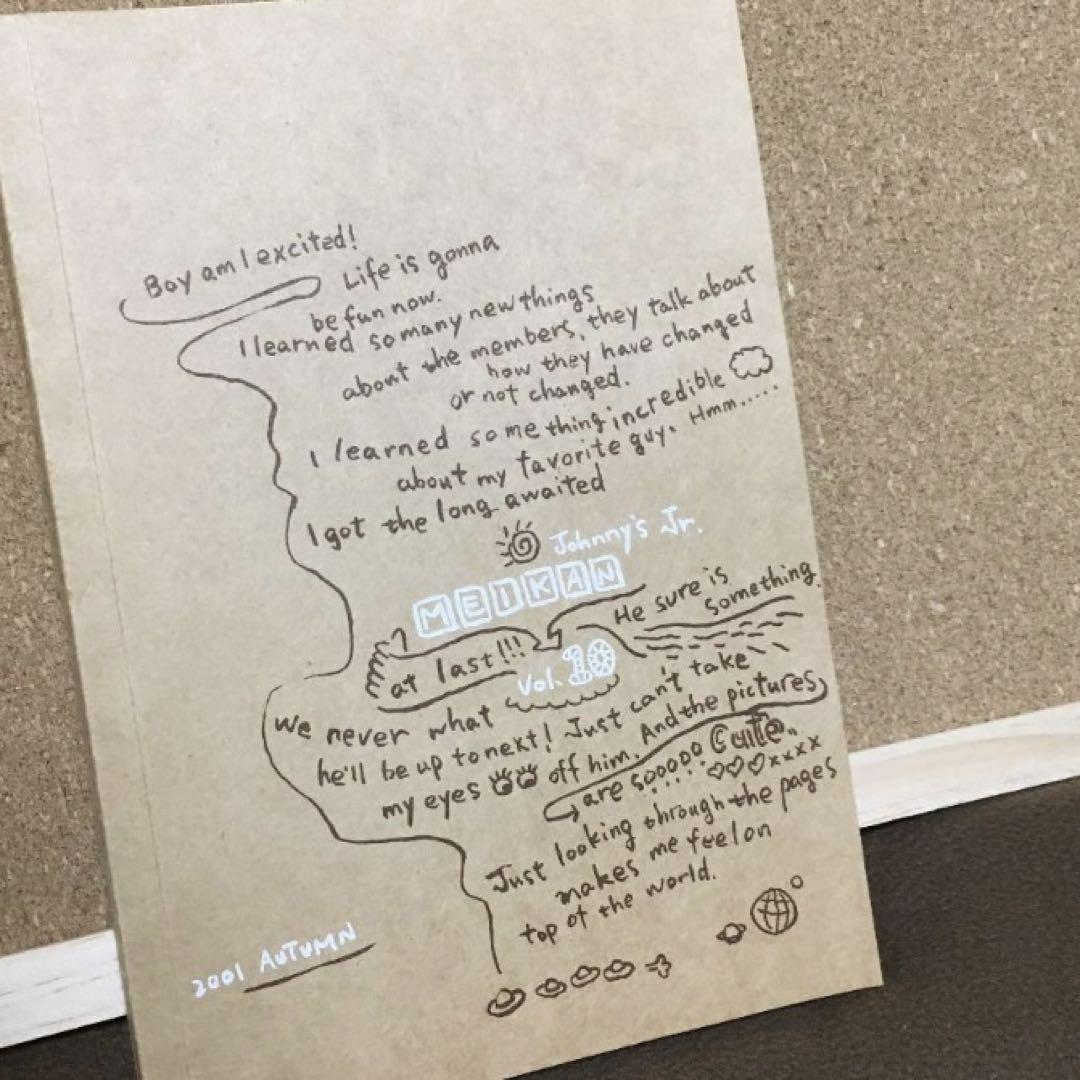 Boy am I excited!
Life is gonna
be fun now.
I learned so many new things
about the members, they talk about
how they have changed
or not changed.
I learned something incredible
about my favorite guy. Hmm.....
I got the long awaited
Johnny's Jr.
MEIKAN
at last!!!
He sure is
something.
Vol. 10
We never what
he'll be up to next! Just can't take
my eyes off him. And the pictures
are sooooo Cute..
♡♡♡xxxx
Just looking through the pages
makes me feel on
top of the world.
2001 AUTUMN